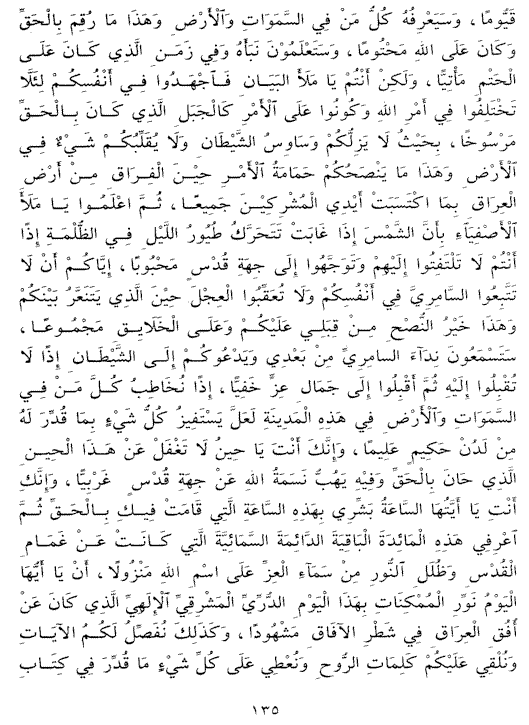 قَيُّومًا، وَسَيَعْرِفُهُ كُلُّ مَنْ فِي السَّمَوَاتِ وَٱلْأَرْضِ وَهَذَا مَا رُقِمَ بِالْحَقِّ
وَكَانَ عَلَى اللهِ مَحْتُومًا، وَسَتَعْلَمُوْنَ نَبَأَهُ وَفِي زَمَنِ الَّذِي كَانَ عَلَى
الْحَتْمِ مَأْتِيًّا، وَلَكِنْ أَنْتُمْ يَا مَلَأَ البَيَانِ فَٱجْهَدُوا فِي أَنْفُسِكُمْ لِئَلَّا
تَخْتَلِفُوا فِي أَمْرِ اللهِ وَكُونُوا عَلَى الْأَمْرِ كَالْجَبَلِ الَّذِي كَانَ بِالْحَقِّ
مَرْسُوخًا، بِحَيْثُ لَا يَزِلُّكُمْ وَسَاوِسُ الشَّيْطَانِ وَلَا يُقَلِّبُكُمْ شَيْءٌ فِي
ٱلْأَرْضِ وَهَذَا مَا يَنْصَحُكُمْ حَمَامَةُ ٱلْأَمْرِ حِيْنَ الْفِرَاقِ مِنْ أَرْضِ
الْعِرَاقِ بِمَا اكْتَسَبَتْ أَيْدِي الْمُشْرِكِيْنَ جَمِيعًا، ثُمَّ اعْلَمُوا يَا مَلَأَ
الْأَصْفِيَآءِ بِأَنَّ الشَّمْسَ إِذَا غَابَتْ تَتَحَرَّكُ طُيُورُ اللَّيْلِ فِي الظُّلْمَةِ إِذًا
أَنْتُمْ لَا تَلْتَفِتُوا إِلَيْهِمْ وَتَوَجَّهُوا إِلَى جِهَةِ قُدْسٍ مَحْبُوبًا، إِيَّاكُمْ أَنْ لَا
تَتَّبِعُوا السَّامِرِيَّ فِي أَنْفُسِكُمْ وَلَا تُعَقِّبُوا الْعِجْلَ حِيْنَ الَّذِي يَتَنَعَّرُ بَيْنَكُمْ
وَهَذَا خَيْرُ النُّصْحِ مِنْ قِبَلِي عَلَيْكُمْ وَعَلَى الْخَلَايِقِ مَجْمُوعًا،
سَتَسْمَعُونَ نِدَآءَ السَّامِرِيِّ مِنْ بَعْدِي وَيَدْعُوكُمْ إِلَى الشَّيْطَانِ إِذًا لَا
تُقْبِلُوا إِلَيْهِ ثُمَّ أَقْبِلُوا إِلَى جَمَالِ عِزٍّ خَفِيًّا، إِذًا نُخَاطِبُ كُلَّ مَنْ فِي
السَّمَوَاتِ وَٱلْأَرْضِ فِي هَذِهِ الْمَدِينَةِ لَعَلَّ يَسْتَفِيزُ كُلُّ شَيْءٍ بِمَا قُدِّرَ لَهُ
مِنْ لَدُنْ حَكِيمٍ عَلِيمًا، وَإِنَّكَ أَنْتَ يَا حِينُ لَا تَغْفَلْ عَنْ هَذَا الْحِينِ
الَّذِي حَانَ بِالْحَقِّ وَفِيْهِ يَهُبُّ نَسَمَةُ اللهِ عَنْ جِهَةِ قُدْسٍ غَرْبِيًّا، وَإِنَّكِ
أَنْتِ يَا أَيَّتُهَا السَّاعَةُ بَشِّرِي بِهَذِهِ السَّاعَةِ الَّتِي قَامَتْ فِيكِ بِالْحَقِّ ثُمَّ
ٱعْرِفِي هَذِهِ الْمَائِدَةَ الْبَاقِيَةَ الدَّائِمَةَ السَّمَائِيَّةَ الَّتِي كَانَتْ عَنْ غَمَامِ
الْقُدْسِ وَظُلَلِ ٱلنُّورِ مِنْ سَمَآءِ الْعِزِّ عَلَى اسْمِ اللهِ مَنْزُولًا، أَنْ يَا أَيُّهَا
الْيَوْمُ نَوِّرِ الْمُمْكِنَاتِ بِهَذَا الْيَوْمِ الدُّرِّيِّ الْمَشْرِقِيِّ ٱلْإِلَهِيِّ الَّذِي كَانَ عَنْ
أُفُقِ الْعِرَاقِ فِي شَطْرِ الْآفَاقِ مَشْهُودًا، وَكَذَلِكَ نُفَصِّلُ لَكُمُ الْآيَاتِ
وَنُلْقِي عَلَيْكُمْ كَلِمَاتِ الرُّوحِ وَنُعْطِي عَلَى كُلِّ شَيْءٍ مَا قُدِّرَ فِي كِتَابِ
١٣٥